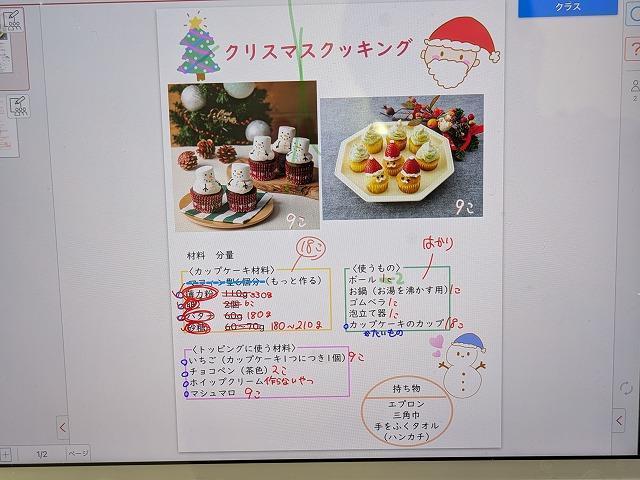 クラス
クリスマスクッキング
9こ
9こ
材料 分量
18こ
〈カップケーキ材料〉
マフィン型6個分 (もっと作る)
薄力粉 110g 330g
卵 2個 6こ
バター 60g 180g
砂糖 60～70g 180～210g
はかり
〈使うもの〉
ボール 1こ 2
お鍋（お湯を沸かす用）1こ
ゴムベラ 1こ
泡立て器 1こ
カップケーキのカップ 18こ
〈トッピングに使う材料〉
いちご（カップケーキ1つにつき1個）9こ
チョコペン（茶色）2こ
ホイップクリーム 作らないやつ
マシュマロ 9こ
持ち物
エプロン
三角巾
手をふくタオル
(ハンカチ)
1/2 ページ